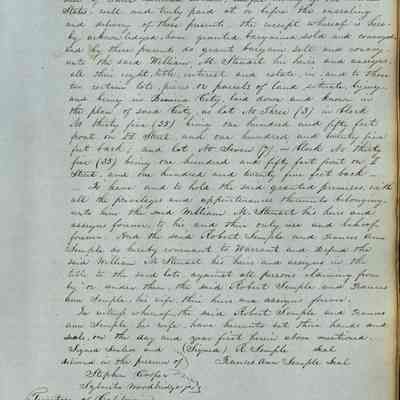 States, well and truly paid at or before the ensealing
and delivery of these presents, the receipt whereof is here-
by acknowledged, have granted bargained sold and conveyed,
and by these presents do grant bargain sell and convey
unto the said William M. Steuart his heirs and assigns,
all their right, title, interest and estate, in and to those
two certain lots, piece or parcels of land, situate, lying
and being in Benicia City, laid down and known in
the plan of said City, as lot No Three (3) in block
No thirty five (35) being one hundred and fifty feet
front on Street, and one hundred and twenty five
feet back; and lot No Seven (7) in block No thirty
five (35) being one hundred and fifty feet front on
Street, and one hundred and twenty five feet back
To have and to hold the said granted premises, with
all the privileges and appurtenances thereunto belonging
unto him the said William M. Steuart his heirs and
assigns forever, to his and their only use and behoof
forever. And the said Robert Semple and Frances Ann
Semple do hereby covenant to Warrant and defend the
said William M Steuart his heirs and assigns in the
title to the said lots, against all persons claiming from
by or under them, the said Robert Semple and Frances
Ann Semple, his wife, their heirs and assigns forever.
In witness whereof, the said Robert Semple and Frances
Ann Semple his wife, have hereunto set their hands and
seals, on the day and year first herein above mentioned.
Signed Sealed and (Signed) R. Semple Seal
delivered in the presence of Frances Ann Semple Seal
Stephen Cooper
Sylvester Woodbridge, jr
Territory of California